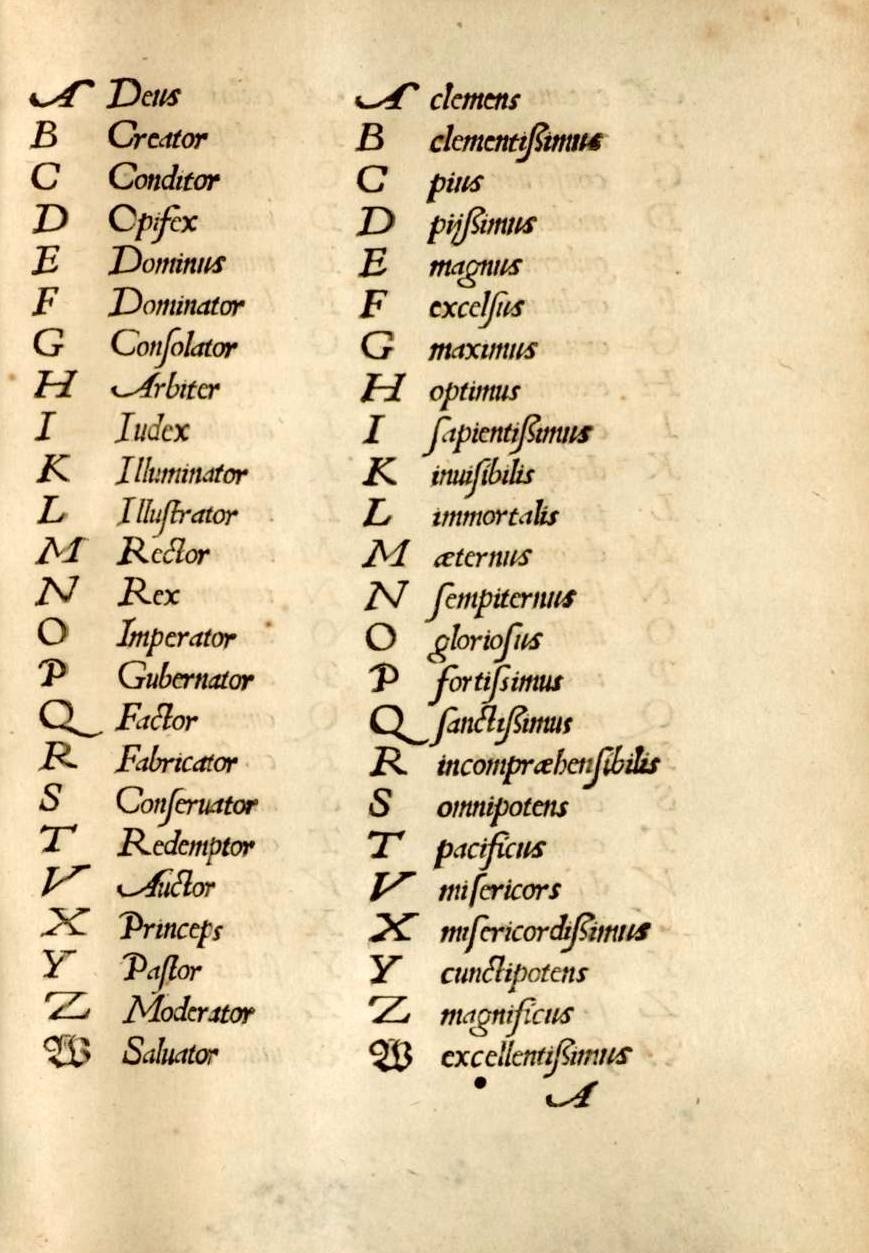 A Deus
B Creator
C Conditor
D Opifex
E Dominus
F Dominator
G Conſolator
H Arbiter
I Iudex
K Illuminator
L Illuſtrator
M Rector
N Rex
O Imperator
P Gubernator
Q Factor
R Fabricator
S Conſeruator
T Redemptor
V Auctor
X Princeps
Y Paſtor
Z Moderator
W Saluator
A clemens
B clementißimus
C pius
D pijßimus
E magnus
F excelſus
G maximus
H optimus
I ſapientißimus
K inuiſibilis
L immortalis
M æternus
N ſempiternus
O glorioſus
P fortiſsimus
Q ſanctißimus
R incompræhenſibilis
S omnipotens
T pacificus
V miſericors
X miſericordißimus
Y cunctipotens
Z magnificus
W excellentißimus
A